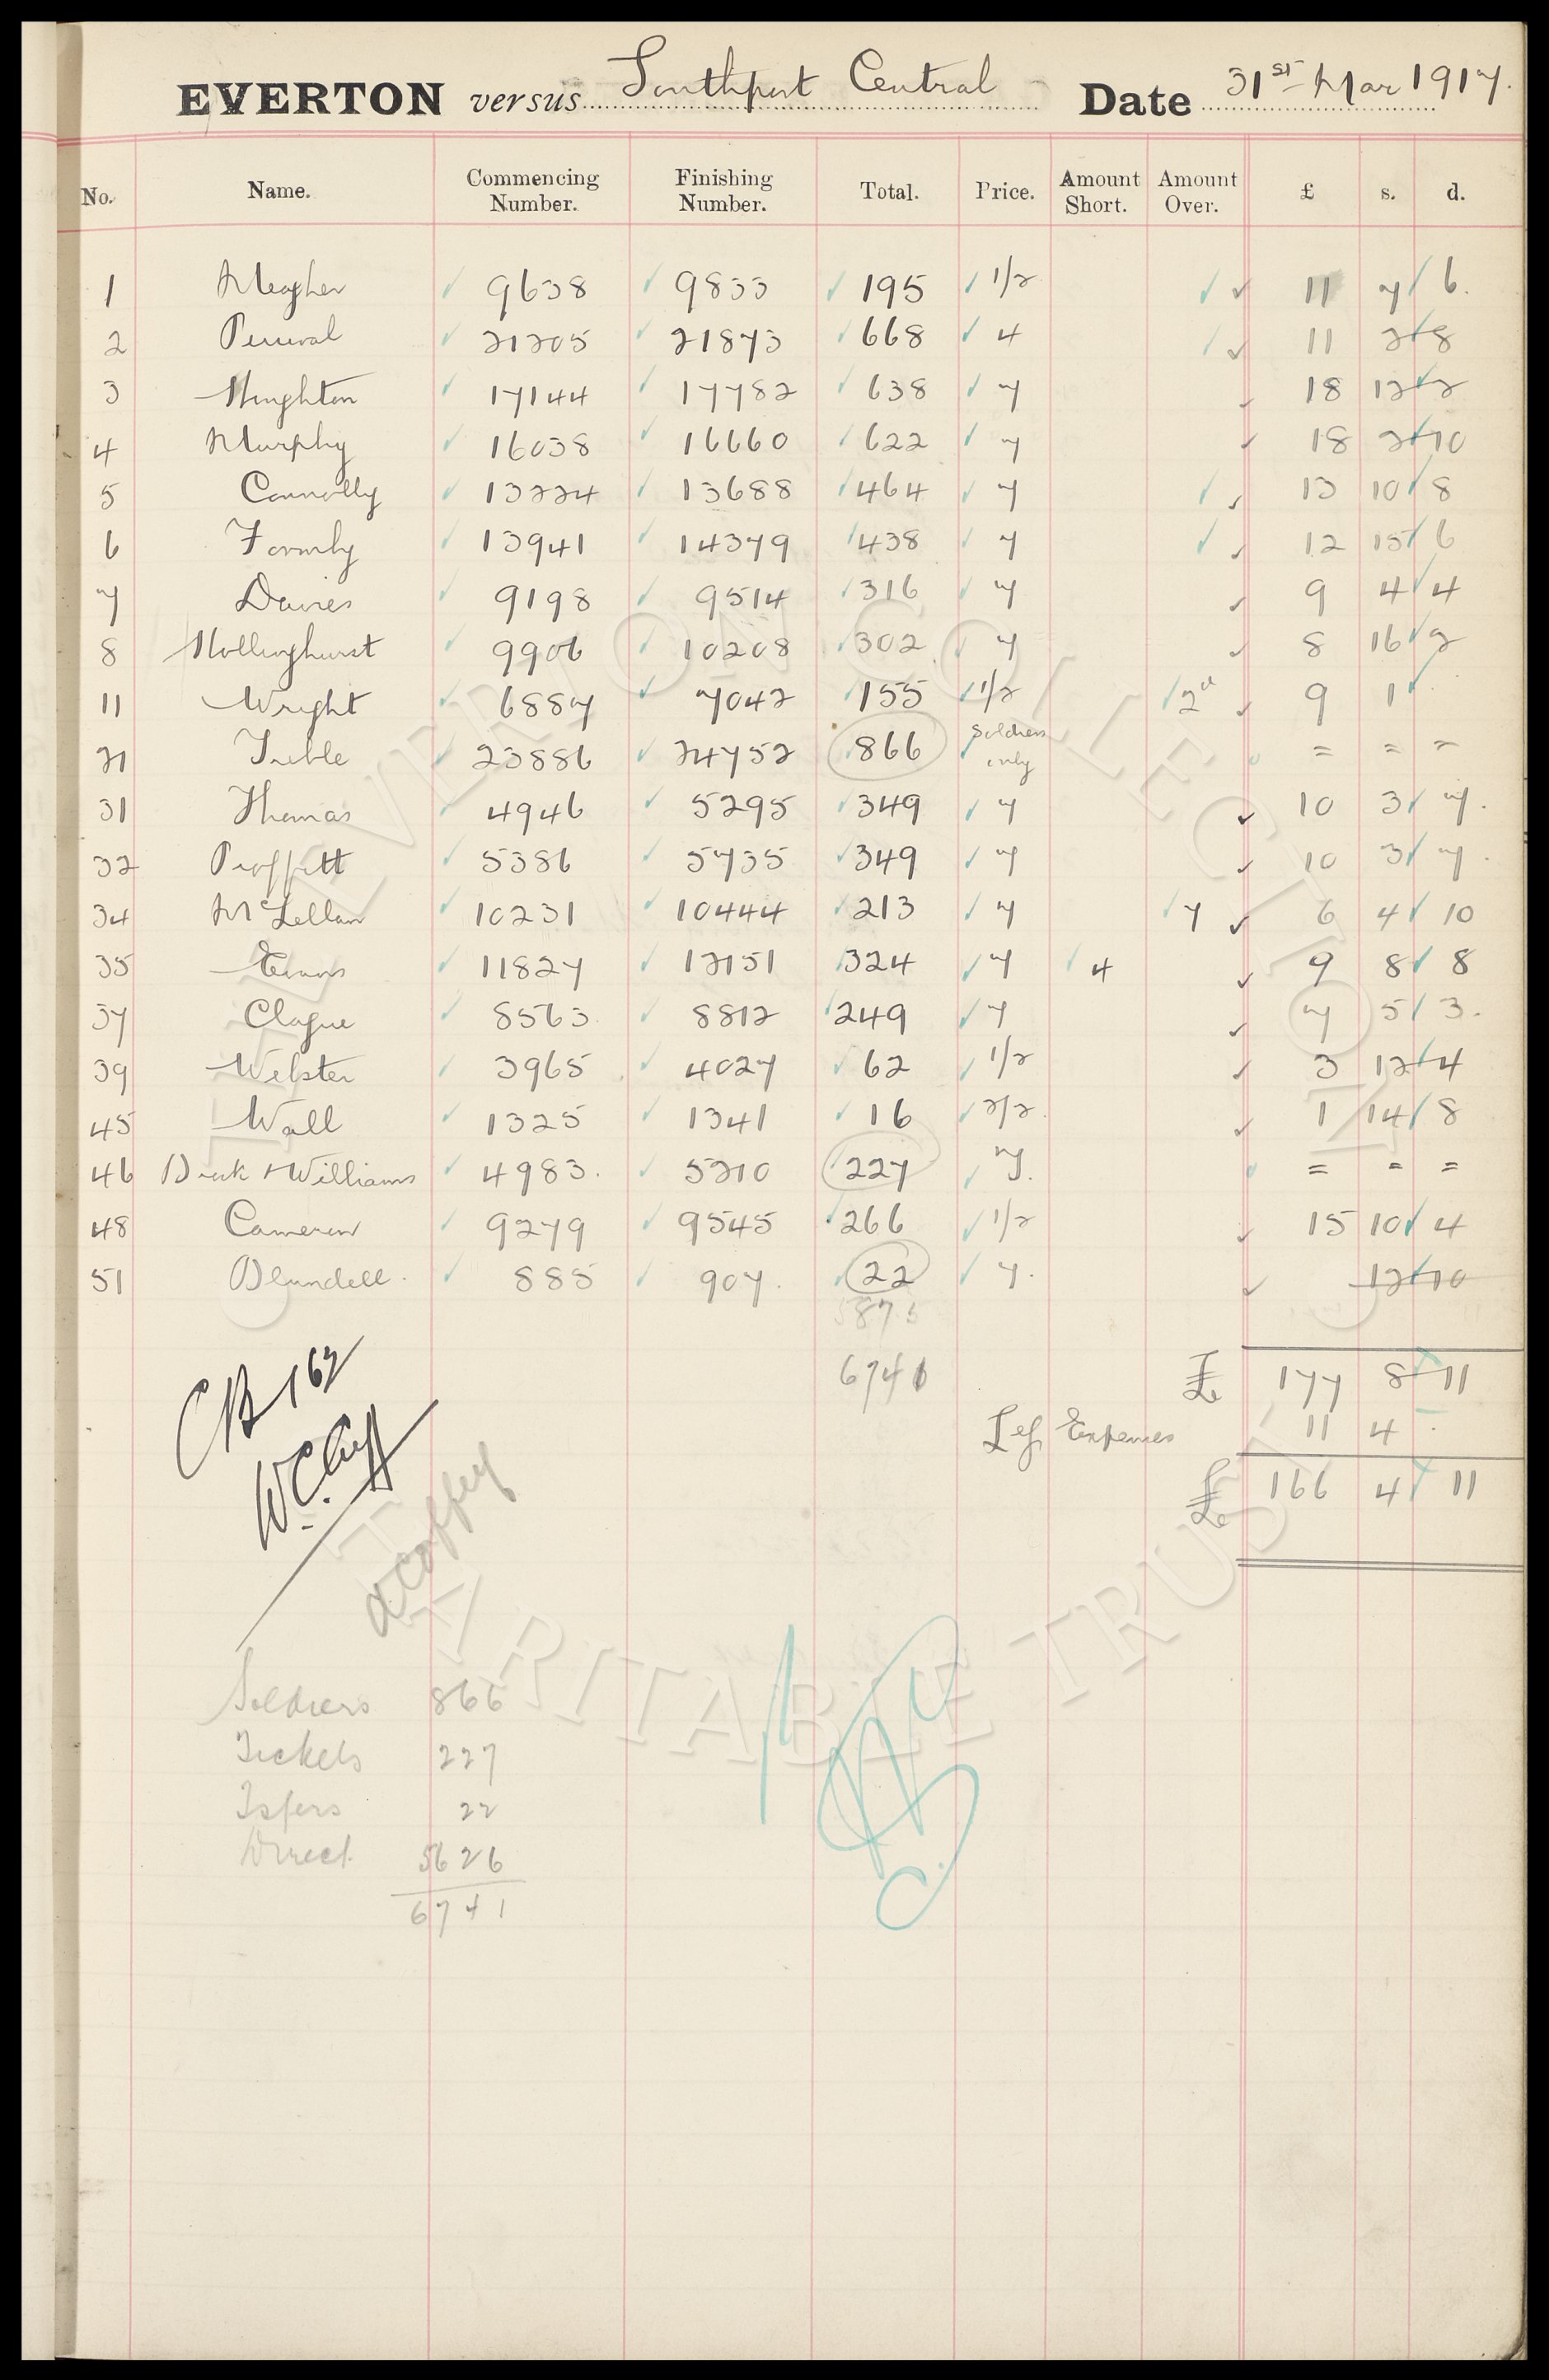 EVERTON versus Southport Central Date 31st Mar 1917.
No. Name. Commencing Number. Finishing Number. Total. Price. Amount Short. Amount Over. £ s. d.
1 Meagher 9638 9833 195 1/2 11 7 6.
2 Percival 21205 21873 668 4 11 2 8
3 Houghton 17144 17782 638 7 18 12 2
4 Murphy 16038 16660 622 7 18 2 10
5 Connolly 13224 13688 464 7 13 10 8
6 Formby 13941 14379 438 7 12 15 6
7 Davies 9198 9514 316 7 9 4 4
8 Hollinghurst 9906 10208 302 7 8 16 2
11 Wright 6887 7042 155 1/2 2d 9 1 .
21 Treble 23886 24752 866 Soldiers only = = =
31 Thomas 4946 5295 349 7 10 3 7.
32 Proffitt 5386 5735 349 7 10 3 7.
34 McLellan 10231 10444 213 7 7 6 4 10
35 Evans 11827 12151 324 7 4 9 8 8
37 Clague 8563 8812 249 7 7 5 3.
39 Webster 3965 4027 62 1/2 3 12 4
45 Wall 1325 1341 16 2/2. 1 14 8
46 Dick & Williams 4983. 5210 227 7. = = =
48 Cameron 9279 9545 266 1/2 15 10 4
51 Blundell. 885 907. 22 7. 12 10
5875
6741 £ 177 8 11
CB 162
Less Expenses 11 4 -
W.C. Cuff
£ 166 4 11
A Coffey
Soldiers 866
Tickets 227
Tsfers 22
Direct 5626
6741
EVERTON COLLECTION
CHARITABLE TRUST